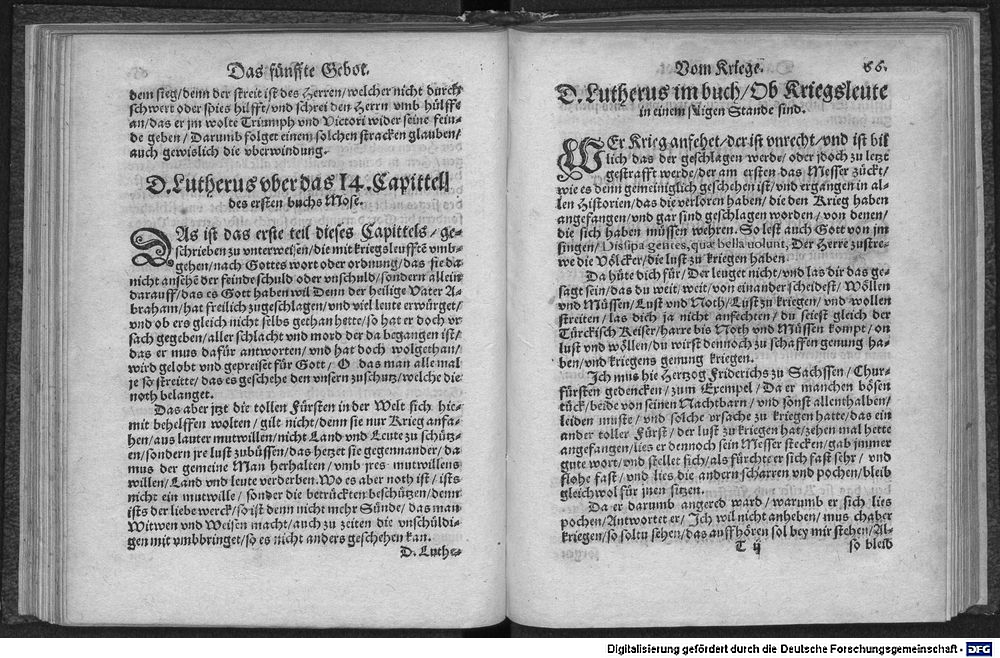 Das fünffte Gebot.
dem sieg/denn der streit ist des Herren/welcher nicht durch
schwert oder spies hülfft/vnd schrei den Herrn vmb hülffe
an/das er jm wolte Triumph vnd Victori wider seine fein-
de geben/Darumb folget einem solchen starcken glauben/
auch gewislich die vberwindung.
D.Lutherus vber das 14.Capittell
des ersten buchs Mose.
DAs ist das erste teil dieses Capittels/ge-
schrieben zu vnterweisen/die mit kriegsleufftē vmb-
gehen/nach Gottes wort oder ordnung/das sie da
nicht ansehē der feinde schuld oder vnschuld/sondern allein
darauff/das es Gott haben wil Denn der heilige Vater A-
braham/hat freilich zugeschlagen/vnd viel leute erwürget/
vnd ob ers gleich nicht selbs gethan hette/so hat er doch vr
sach gegeben/aller schlacht vnd mord der da begangen ist/
das er mus dafür antworten/vnd hat doch wolgethan/
wird gelobt vnd gepreiset für Gott/O das man alle mal
je so streitte/das es geschehe den vnsern zu schutz/welche die
noth belanget.
Das aber jtzt die tollen Fürsten in der Welt sich hie-
mit behelffen wolten/gilt nicht/denn sie nur Krieg anfa-
hen/aus lauter mutwillen/nicht Land vnd Leute zu schütz-
en/sondern jre lust zubüssen/das hetzet sie gegennander/da
mus der gemeine Man herhalten/vmb jres mutwillens
willen/Land vnd leute verderben.Wo es aber noth ist/ists
nicht ein mutwille/sonder die betrückten beschützen/denn
ists der liebe werck/so ist denn nicht mehr Sünde/das man
Witwen vnd Weisen macht/auch zu zeiten die vnschüldi-
gen mit vmbbringet/so es nicht anders geschehen kan.
D. Luthe-
Vom Kriege. 86.
D.Lutherus im buch/Ob Kriegsleute
in einem seligen Stande sind.
WEr Krieg anfehet/der ist vnrecht/vnd ist bil
lich das der geschlagen werde/oder jdoch zu letzt
gestrafft werde/der am ersten das Messer zückt/
wie es denn gemeiniglich geschehen ist/vnd ergangen in al-
len Historien/das die verloren haben/die den Krieg haben
angefangen/vnd gar sind geschlagen worden/von denen/
die sich haben müssen wehren. So lest auch Gott von jm
singen/Dissipa gentes, quæ bella uolunt, Der Herre zustre-
we die Völcker/die lust zu kriegen haben
Da hüte dich für/Der leuget nicht/vnd las dir das ge-
sagt sein/das du weit/weit/von einander scheidest/Wöllen
vnd Müssen/Lust vnd Noth/Lust zu kriegen/vnd wollen
streiten/las dich ja nicht anfechten/du seiest gleich der
Türckisch Keiser/harre bis Noth vnd Müssen kompt/on
lust vnd wöllen/du wirst dennoch zu schaffen genung ha-
ben/vnd kriegens genung kriegen.
Ich mus hie Hertzog Friderichs zu Sachssen/Chur-
fürsten gedencken/zum Exempel/Da er manchen bösen
tück/beide von seinen Nachtbarn/vnd sonst allenthalben/
leiden muste/vnd solche vrsache zu kriegen hatte/das ein
ander toller Fürst/der lust zu kriegen hat/zehen mal hette
angefangen/lies er dennoch sein Messer stecken/gab jmmer
gute wort/vnd stellet sich/als fürchte er sich fast sehr/vnd
flohe fast/vnd lies die andern scharren vnd pochen/bleib
gleichwol für jnen sitzen.
Da er darumb angered ward/warumb er sich lies
pochen/Antwortet er/Ich wil nicht anheben/mus ich aber
kriegen/so soltu sehen/das auffhören sol bey mir stehen/Al-
T ij so bleib
Digitalisierung gefördert durch die Deutsche Forschungsgemeinschaft - DFG